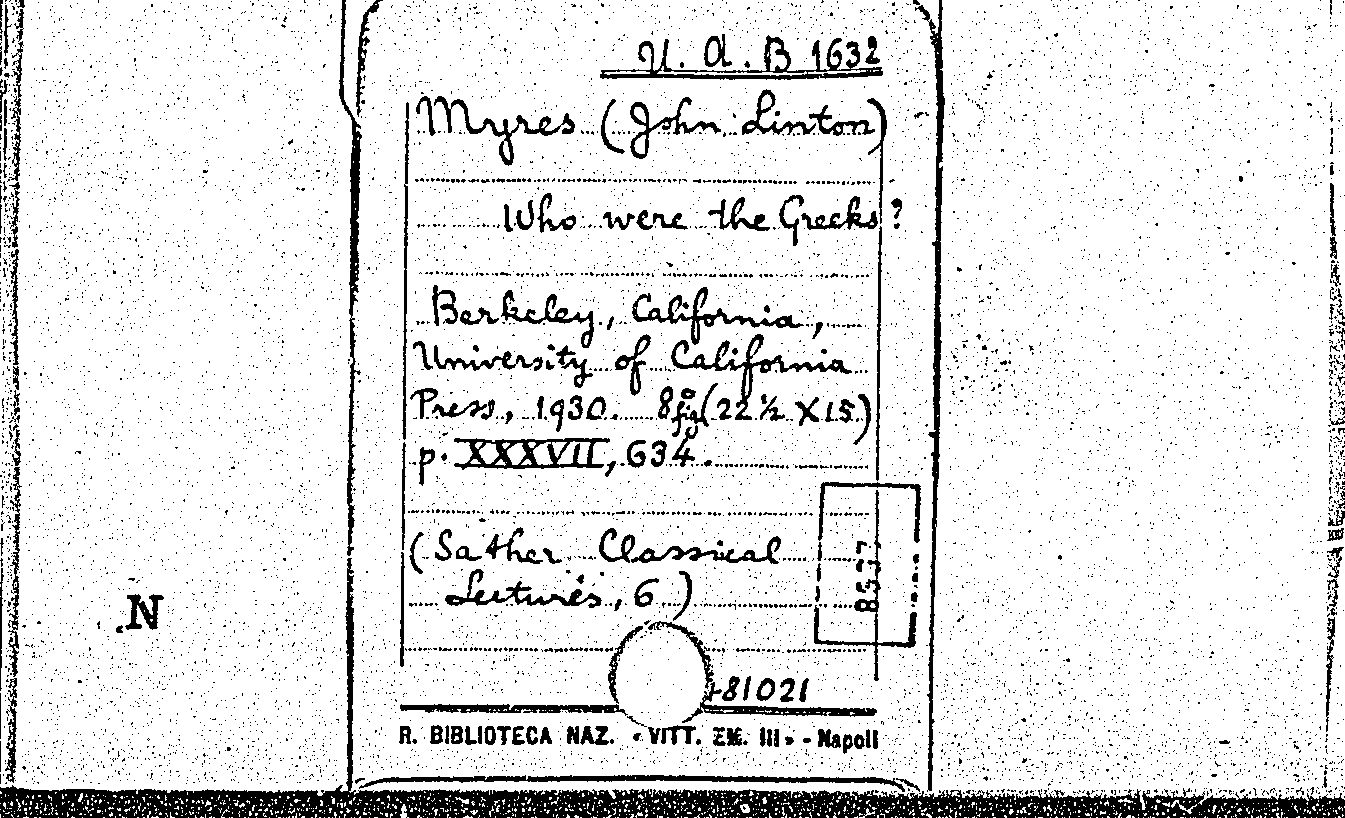 U. A. B 1632
Myres (John Linton)
Who were the Greeks?
Berkeley, California,
University of California
Press, 1930. 8º fig (22 ½ X 15)
p. XXXVII, 634.
(Sather Classical
Lectures, 6)
8537
81021
R. BIBLIOTECA NAZ. « VITT. EM. III » - Napoli
N